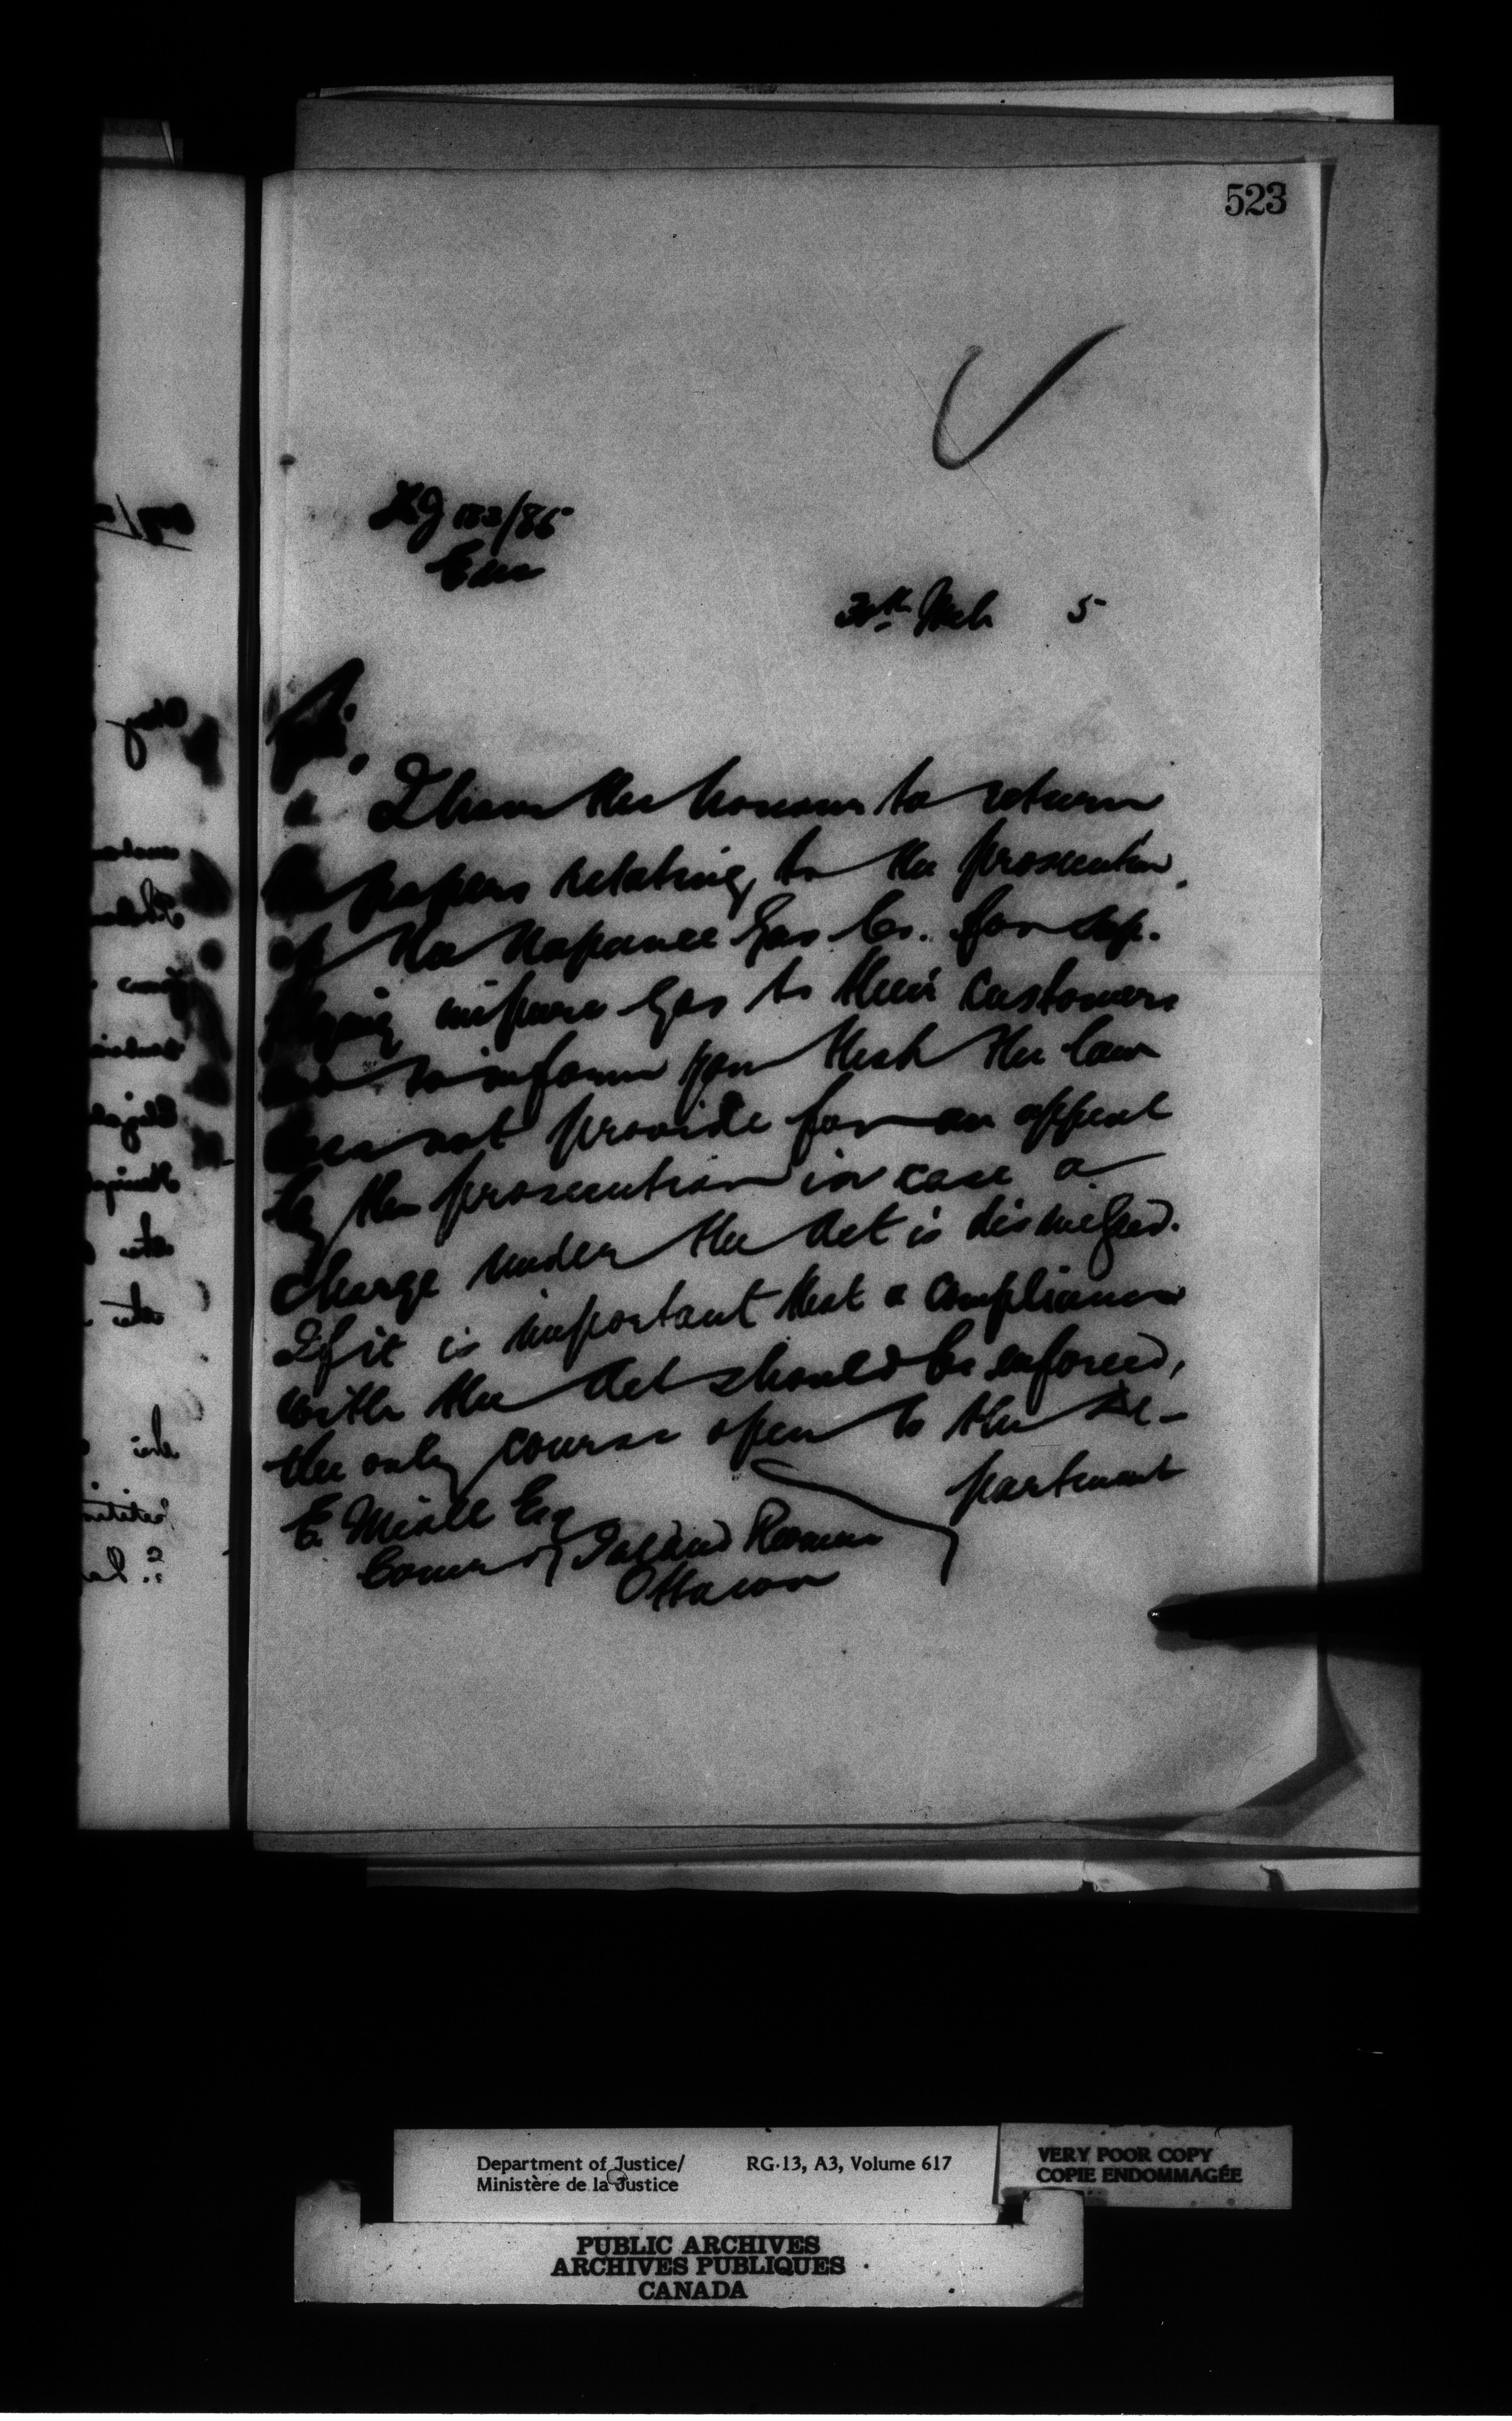 523
183/85
30th Mch 5
Sir,
I have the honour to return
papers relating to the prosecution
of the Napanee Gas Co. for sup-
plying impure Gas to their customers
and to inform you that the law
does not provide for an appeal
by the prosecution in case a
charge under the Act is dismissed.
If it is important that a compliance
with the Act should be enforced,
the only course open to the De-
partment
E. Miall Esq
Comr of Inland Revenue
Ottawa
Department of Justice/
Ministère de la Justice
RG-13, A3, Volume 617
VERY POOR COPY
COPIE ENDOMMAGÉE
PUBLIC ARCHIVES
ARCHIVES PUBLIQUES
CANADA